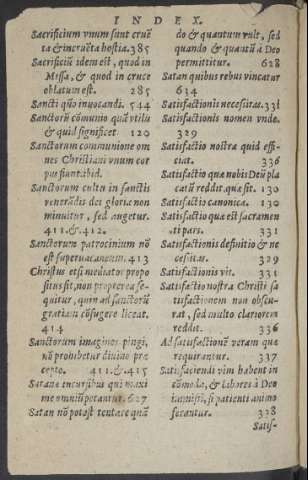 INDEX.
Sacrificium unum sunt cruẽ
ta & incruẽta hostia. 385
Sacrificiũ idem est, quod in
Missa, & quod in cruce
oblatum est. 285
Sancti quõ invocandi. 544
Sanctorũ cõmunio quã utilis
& quid significet 120
Sanctorum communione om
nes Christiani unum cor
pus fiunt ibid.
Sanctorum cultu in sanctis
venerãdis dei gloria non
minuitur, sed augetur.
411. & 412.
Sanctorum patrocinium nõ
est supervacaneum. 413
Christus etsi mediator propo
situs sit, non propterea se-
quitur, quin ad sanctorũ
gratiam cõfugere liceat.
414
Sanctorum imagines pingi,
nõ prohibetur divino præ
cepto. 411. & 415
Satanæ incursibus qui maxi
me omniũ petantur. 627
Satan nõ potest tentare quã
do & quantum vult, sed
quando & quantũ à Deo
permittitur. 628
Satan quibus rebus vincatur
634
Satisfactionis necessitas. 331
Satisfactionis nomen unde.
329
Satisfactio nostra quid effi-
ciat. 336
Satisfactio quæ nobis Deũ pla
catũ reddit quæ sit. 130
Satisfactio canonica. 130
Satisfactio quæ est sacramen
ti pars. 331
Satisfactionis definitio & ne
cessitas. 329
Satisfactionis vis. 331
Satisfactio nostra Christi sa
tisfactionem non obscu-
rat, sed multo clariorem
reddit. 336
Ad satisfactionẽ veram quæ
requirantur. 337
Satisfaciendi vim habent in
cõmoda, & labores à Deo
immissi, si patienti animo
ferantur. 328
Satis-